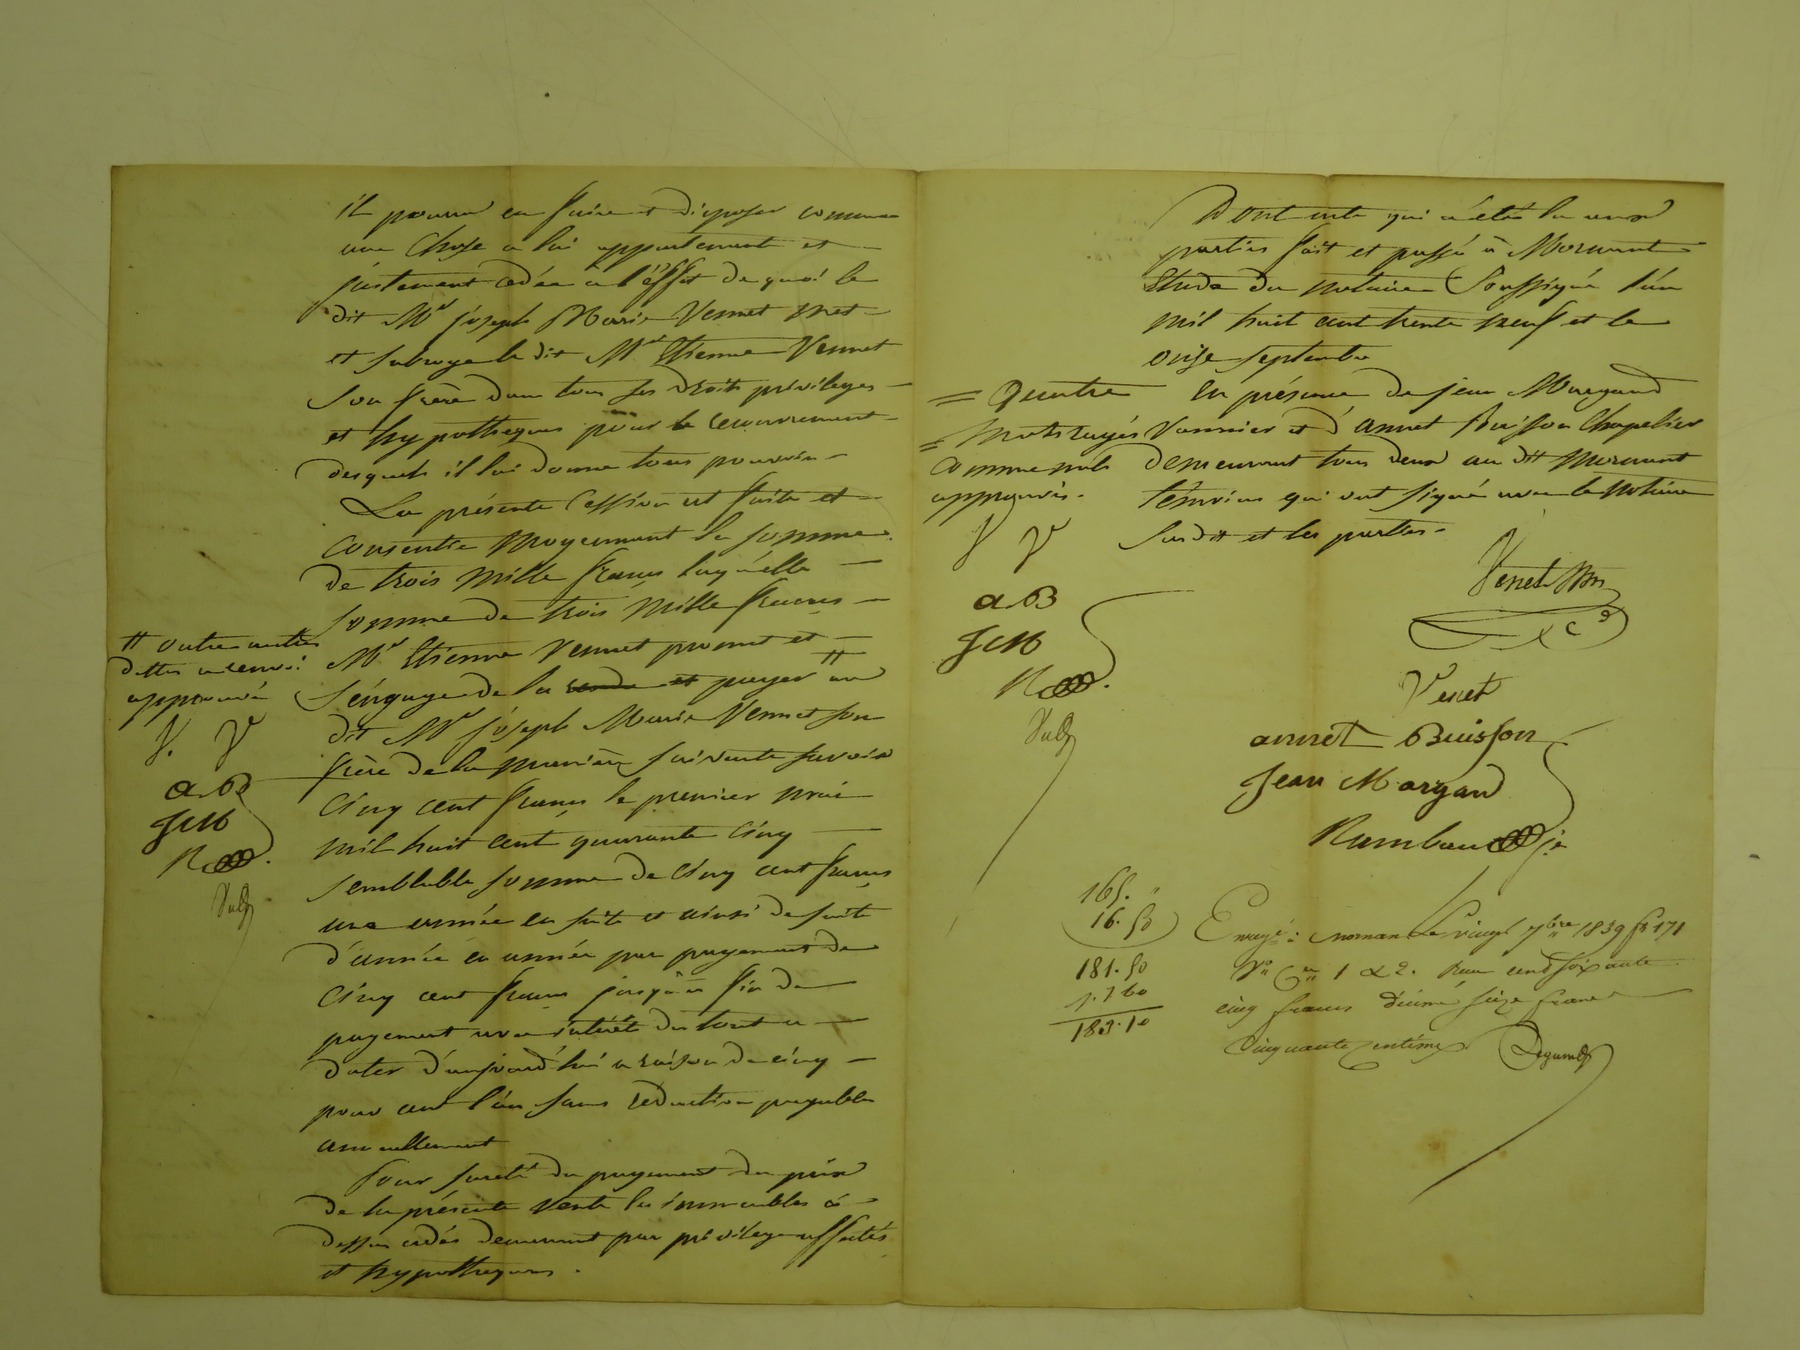 il pourra en faire et disposer comme
une chose a lui appartenant et
justement cedée a l'effet de quoi le
dit Mr joseph Marie Vennet met
et subroge le dit Mr Etienne Vennet
son frère dans tous ses droits privileges
et hypotheques pour le recouvrement
desquels il lui donne tous pouvoirs
La présente Cession est faite et
Consentie moyennant la somme
de trois mille francs laquelle
somme de trois mille francs
Mr Etienne Vennet promet et
s'engage de la rendre et payer # au
dit Mr joseph Marie Vennet son
frère de la manière suivante savoir
Cinq cent francs le premier mai
mil huit cent quarante Cinq
semblable somme de Cinq cent francs
une année en suite et ainsi de suite
d'année en année par payement de
Cinq cent francs jusqu'a fin de
payement avec intérêt du tout a
dater d'aujourd'hui a raison de cinq
pour cent l'an sans reduction payable
annuellement
Pour sureté du payement du prix
de la présente vente les immeubles ci
dessus cédés demeurent par privilege affectés
et hypotheques.
# outre
dettes a renvoi
approuvé
V. V
a. B
J M
R
Dont acte qui a été lu aux
parties fait et passé à Mornant
Etude du notaire Soussigné l'an
mil huit cent trente neuf et le
onze septembre
En présence de jean Morgand
Vannier et d'annet Buisson Chapelier
demeurant tous deux au dit Mornant
témoins qui ont signé avec le Notaire
susdit et les parties.
= Quatre
= mots rayés
comme nuls
approuvés.
V V
a. B
J M
R
Venet
Venet
annet Buisson
Jean Morgand
Rambau
165. "
16. 50
181. 50
1. 60
183. 10
Enregé à mornant Le vingt 7bre 1839 f° 171
V° Ces 1 & 2. Reçu cent soixante
cinq francs décime seize francs
Cinquante centimes